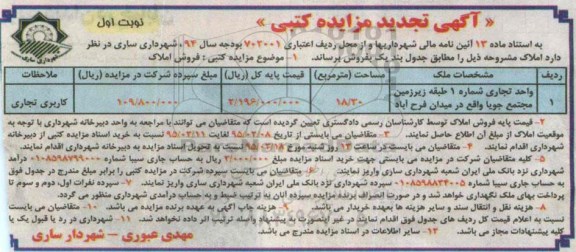 « آگهی تجدید مزایده کتبی »
نوبت اول
شهرداری ساری
به استناد ماده ۱۳ آئین نامه مالی شهرداریها و از محل ردیف اعتباری ۷۰۲۰۰۱ بودجه سال ۹۴، شهرداری ساری در نظر
دارد املاک مشروحه ذیل را مطابق جدول بند یک بفروش برساند. ۱ - موضوع مزایده کتبی : فروش املاک
ردیف مشخصات ملک مساحت (مترمربع) قیمت پایه کل (ریال) مبلغ سپرده شرکت در مزایده (ریال) ملاحظات
۱ واحد تجاری شماره ۱ طبقه زیرزمین مجتمع جویا واقع در میدان فرح آباد ۱۸/۳۰ ۲/۱۹۶/۰۰۰/۰۰۰ ۱۰۹/۸۰۰/۰۰۰ کاربری تجاری
۲- قیمت پایه فروش املاک توسط کارشناسان رسمی دادگستری تعیین گردیده است که متقاضیان می توانند با مراجعه به واحد دبیرخانه شهرداری با توجه به
موقعیت املاک از مبلغ آن اطلاع حاصل نمایند. ۳- متقاضیان می بایستی از تاریخ ۹۵/۰۳/۰۸ لغایت ۹۵/۰۳/۱۷ نسبت به خرید اسناد مزایده کتبی از دبیرخانه
شهرداری اقدام نمایند. ۴- متقاضیان می بایست در ساعت ۱۳ روز شنبه مورخ نسبت به تحویل اسناد مزایده به دبیرخانه شهرداری اقدام نمایند.
۵- کلیه متقاضیان شرکت در مزایده می بایستی جهت خرید اسناد مزایده مبلغ ۲/۰۰۰/۰۰۰ ریال به حساب جاری سیبا شماره ۰۱۰۸۵۹۸۷۹۹۰۰۰ درآمد
شهرداری نزد بانک ملی ایران شعبه شهرداری ساری واریز نمایند. ۶- متقاضیان می بایست سپرده شرکت در مزایده کتبی را برابر مبلغ مندرج در جدول فوق
به حساب جاری سیبا شماره سپرده شهرداری نزد بانک ملی ایران شعبه شهرداری ساری واریز نمایند. ۷- سپرده نفرات اول، دوم و سوم تا
پرداخت بهای ملک نگهداری خواهد شد و در صورت انصراف برنده مزایده سپرده آنان به ترتیب ضبط و به حساب درآمدی شهرداری منظور می گردد.
۸- هزینه نقل و انتقال سند و سایر هزینه ها بعهده خریدار می باشد. ۹- هزینه چاپ آگهی به عهده برنده مزایده می باشد. ۱۰- متقاضیان می بایست
نسبت به اعلام قیمت کل ردیف های جدول فوق اقدام نمایند در غیر اینصورت به پیشنهاد واصله ترتیب اثر داده نخواهد شد. ۱۱- شهرداری در رد یا قبول یک یا
کلیه پیشنهادات مجاز می باشد. ۱۲- سایر اطلاعات در اسناد مزایده مندرج می باشد.
مهدی عبوری - شهردار ساری